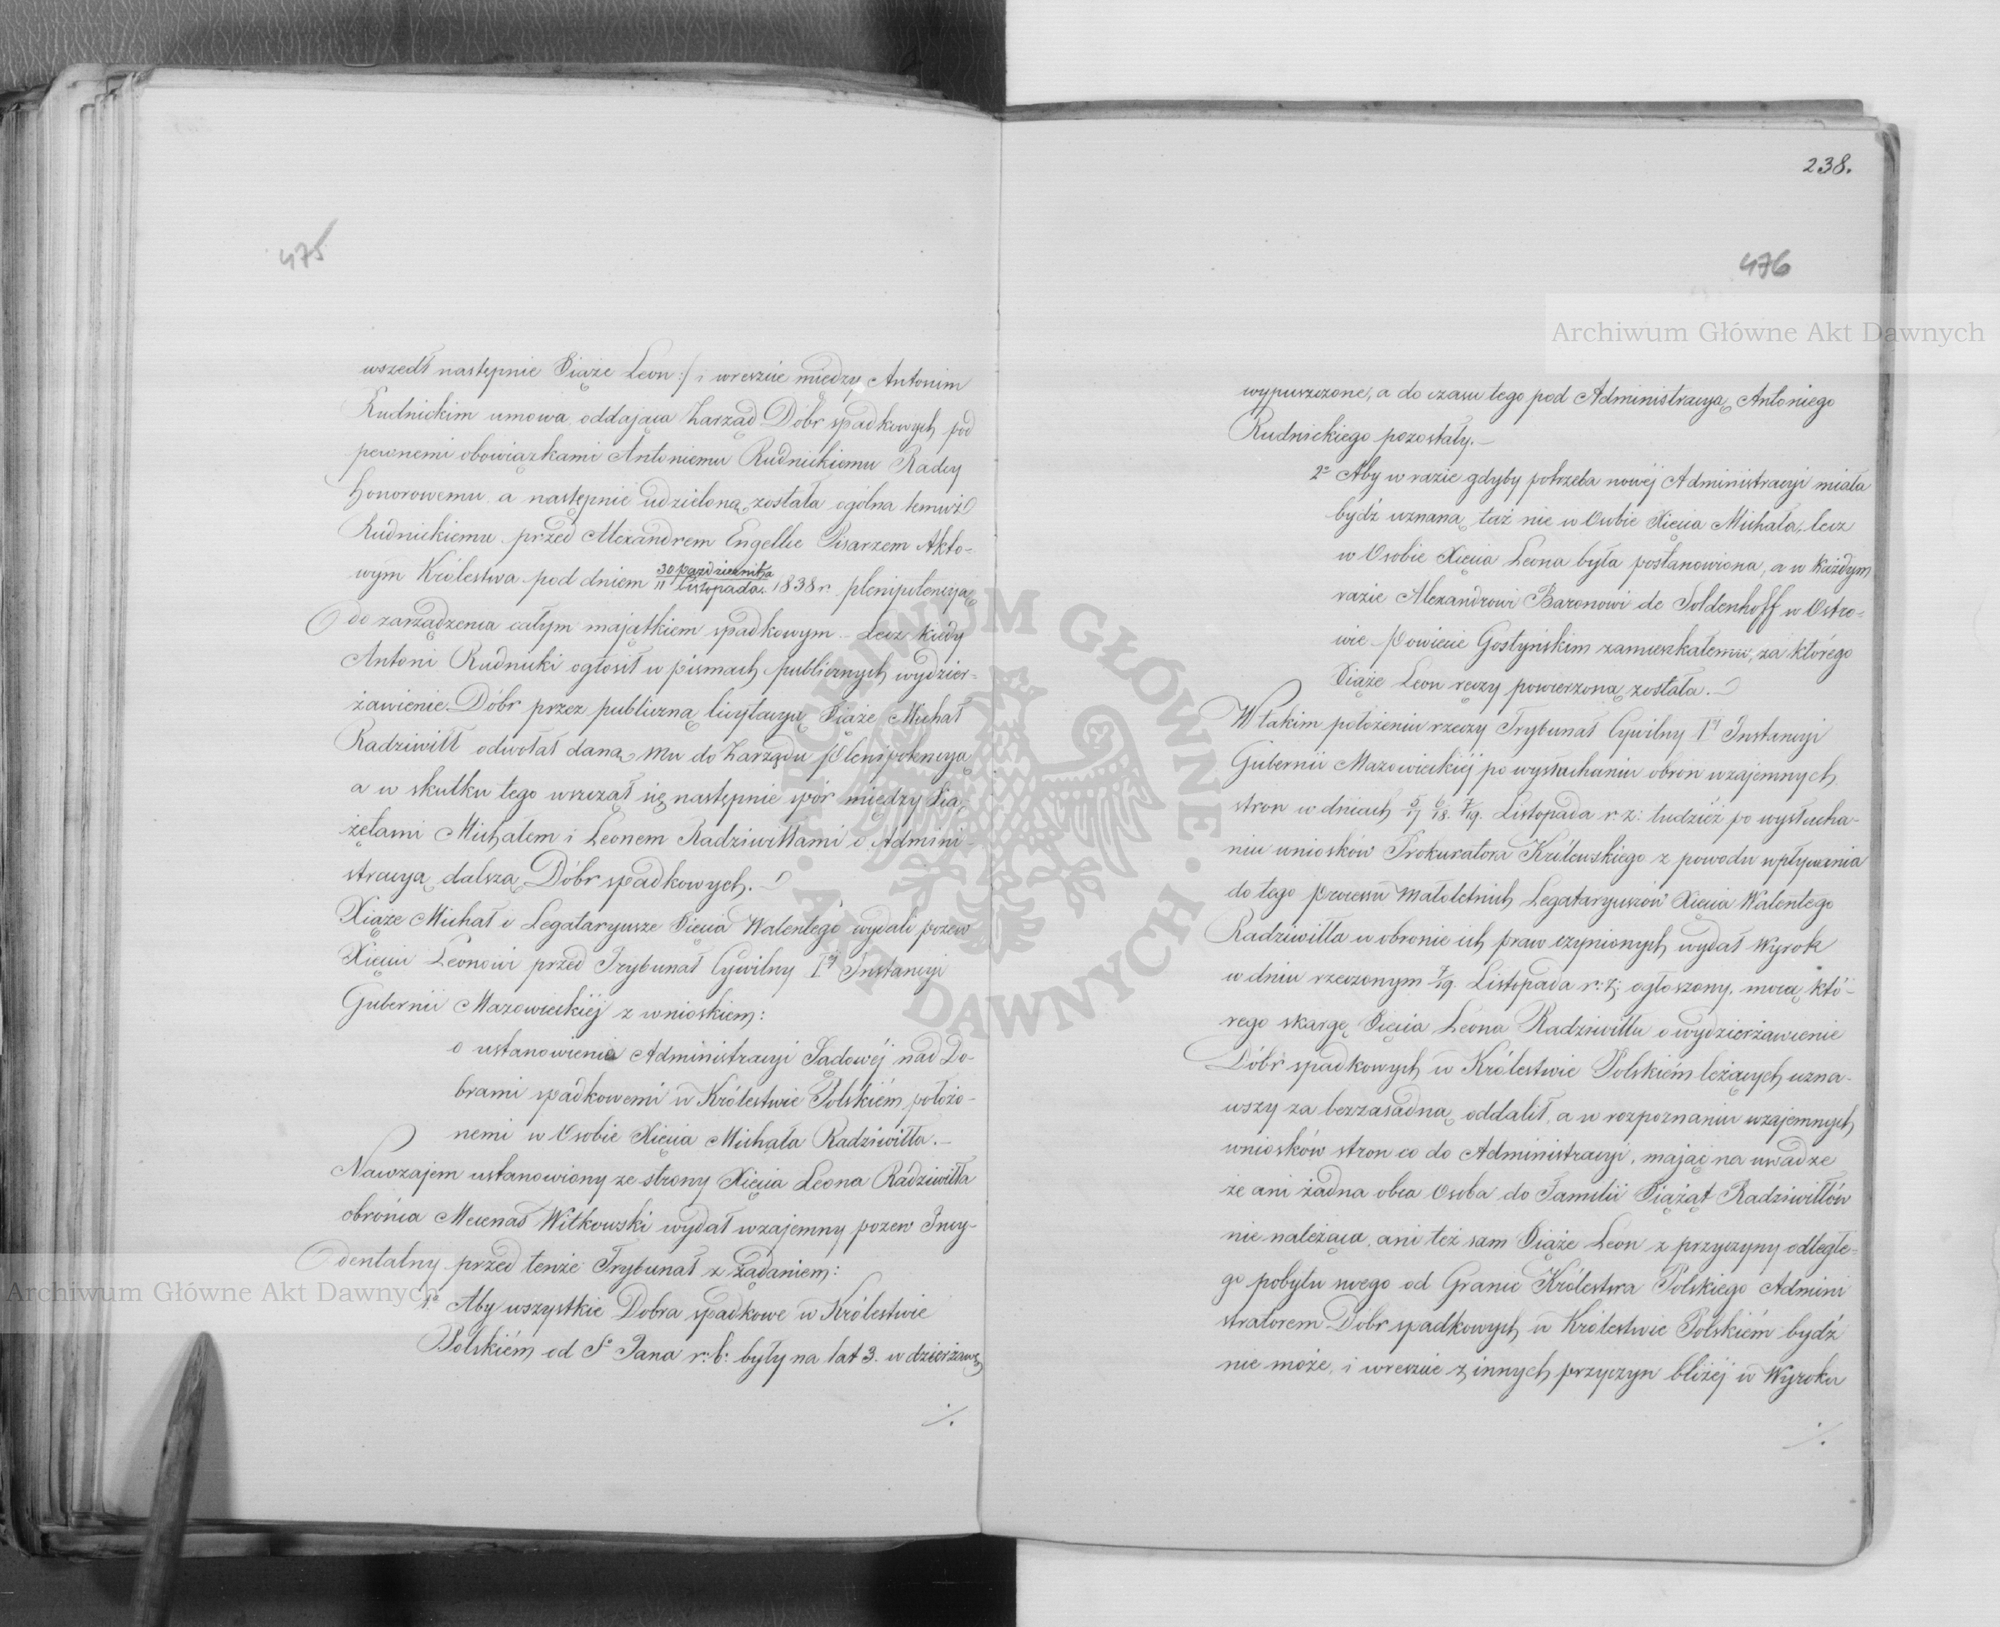 475
wszedł następnie Xiąże Leon :/ i wreszcie między Antonim
Rudnickim umowa, oddająca Zarząd Dóbr spadkowych pod
pewnemi obowiązkami Antoniemu Rudnickiemu Radcy
Honorowemu a następnie udzieloną została ogólna temuż
Rudnickiemu przed Alexandrem Engelke Pisarzem Akto-
wym Królestwa pod dniem 30 października / 11 Listopada 1838 r. plenipotencyja
do zarządzenia całym majątkiem spadkowym. Lecz kiedy
Antoni Rudnicki ogłosił w pismach publicznych wydzier-
żawienie Dóbr przez publiczną licytacyą Xiąże Michał
Radziwiłł odwołał daną mu do Zarządu Plenipotencyą
a w skutku tego wszczął się następnie spór między Xią-
żętami Michałem i Leonem Radziwiłłami o Admini-
stracyą dalszą Dóbr spadkowych.
Xiąże Michał i Legataryusze Xięcia Walentego wydali pozew
Xięciu Leonowi przed Trybunał Cywilny Iej Instancyi
Gubernii Mazowieckiéj z wnioskiem:
o ustanowienie Administracyi Sądowéj nad Do-
brami spadkowemi w Królestwie Polskiém położo-
nemi w Osobie Xięcia Michała Radziwiłła.—
Nawzajem ustanowiony ze strony Xięcia Leona Radziwiłła
obrońca Mecenas Witkowski wydał wzajemny pozew Incy-
dentalny przed tenże Trybunał z żądaniem:
1o Aby wszystkie Dobra spadkowe w Królestwie
Polskiém od So Jana r: b: były na lat 3. w dzierżawę
./.
238.
476
wypuszczone, a do czasu tego pod Administracyą Antoniego
Rudnickiego pozostały.—
2o Aby w razie gdyby potrzeba nowéj Administracyi miała
bydź uznaną, taż nie w Osobie Xięcia Michała, lecz
w Osobie Xięcia Leona była postanowiona, a w każdym
razie Alexandrowi Baronowi de Soldenhoff w Ostro-
wie Powiecie Gostyńskim zamieszkałemu, za którego
Xiąże Leon ręczy powierzoną została.
W takim położeniu rzeczy Trybunał Cywilny Iej Instancyi
Gubernii Mazowieckiéj po wysłuchaniu obron wzajemnych
stron w dniach 5/17 6/18. 7/19. Listopada r. z: tudzież po wysłucha-
niu wniosków Prokuratora Królewskiego z powodu wpływania
do tego processu Małoletnich Legataryuszów Xięcia Walentego
Radziwiłła w obronie ich praw czynionych, wydał Wyrok
w dniu rzeczonym 7/19. Listopada r: z: ogłoszony, mocą któ-
rego skargę Xięcia Leona Radziwiłła o wydzierżawienie
Dóbr spadkowych w Królestwie Polskiém leżących uzna-
wszy za bezzasadną, oddalił, a w rozpoznaniu wzajemnych
wniosków stron co do Administracyi, mając na uwadze
że ani żadna obca Osoba do Familii Xiążąt Radziwiłłów
nie należąca, ani też sam Xiąże Leon z przyczyny odległe-
go pobytu swego od Granic Królestwa Polskiego Admini
stratorem Dóbr spadkowych w Królestwie Polskiém bydź
nie może, i wreszcie z innych przyczyn bliżéj w Wyroku
./.
Archiwum Główne Akt Dawnych
Archiwum Główne Akt Dawnych
ARCHIWUM GŁÓWNE · AKT DAWNYCH ·